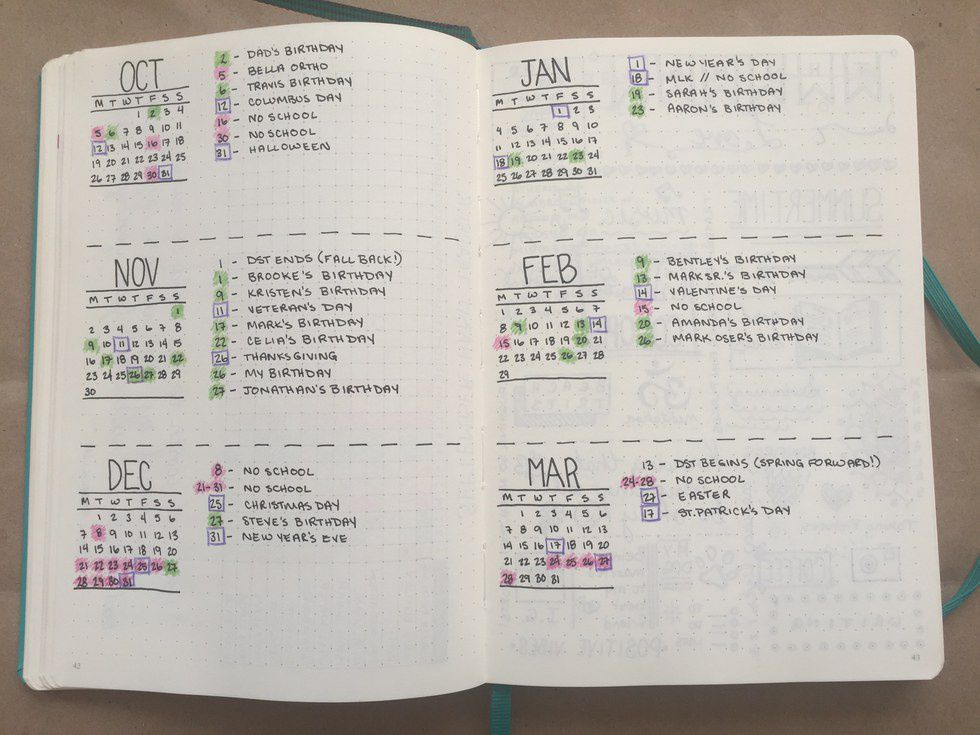 OCT
M T W T F S S
1 2 3 4
5 6 7 8 9 10 11
12 13 14 15 16 17 18
19 20 21 22 23 24 25
26 27 28 29 30 31
2 - DAD'S BIRTHDAY
5 - BELLA ORTHO
6 - TRAVIS BIRTHDAY
12 - COLUMBUS DAY
16 - NO SCHOOL
30 - NO SCHOOL
31 - HALLOWEEN
NOV
M T W T F S S
1
2 3 4 5 6 7 8
9 10 11 12 13 14 15
16 17 18 19 20 21 22
23 24 25 26 27 28 29
30
1 - DST ENDS (FALL BACK!)
1 - BROOKE'S BIRTHDAY
9 - KRISTEN'S BIRTHDAY
11 - VETERAN'S DAY
17 - MARK'S BIRTHDAY
22 - CELIA'S BIRTHDAY
26 - THANKSGIVING
26 - MY BIRTHDAY
27 - JONATHAN'S BIRTHDAY
DEC
M T W T F S S
1 2 3 4 5 6
7 8 9 10 11 12 13
14 15 16 17 18 19 20
21 22 23 24 25 26 27
28 29 30 31
8 - NO SCHOOL
21-31 - NO SCHOOL
25 - CHRISTMAS DAY
27 - STEVE'S BIRTHDAY
31 - NEW YEAR'S EVE
42
JAN
M T W T F S S
1 2 3
4 5 6 7 8 9 10
11 12 13 14 15 16 17
18 19 20 21 22 23 24
25 26 27 28 29 30 31
1 - NEW YEAR'S DAY
18 - MLK // NO SCHOOL
19 - SARAH'S BIRTHDAY
23 - AARON'S BIRTHDAY
FEB
M T W T F S S
1 2 3 4 5 6 7
8 9 10 11 12 13 14
15 16 17 18 19 20 21
22 23 24 25 26 27 28
29
9 - BENTLEY'S BIRTHDAY
13 - MARK SR.'S BIRTHDAY
14 - VALENTINE'S DAY
15 - NO SCHOOL
20 - AMANDA'S BIRTHDAY
26 - MARK OSER'S BIRTHDAY
MAR
M T W T F S S
1 2 3 4 5 6
7 8 9 10 11 12 13
14 15 16 17 18 19 20
21 22 23 24 25 26 27
28 29 30 31
13 - DST BEGINS (SPRING FORWARD!)
24-28 - NO SCHOOL
27 - EASTER
17 - ST. PATRICK'S DAY
43